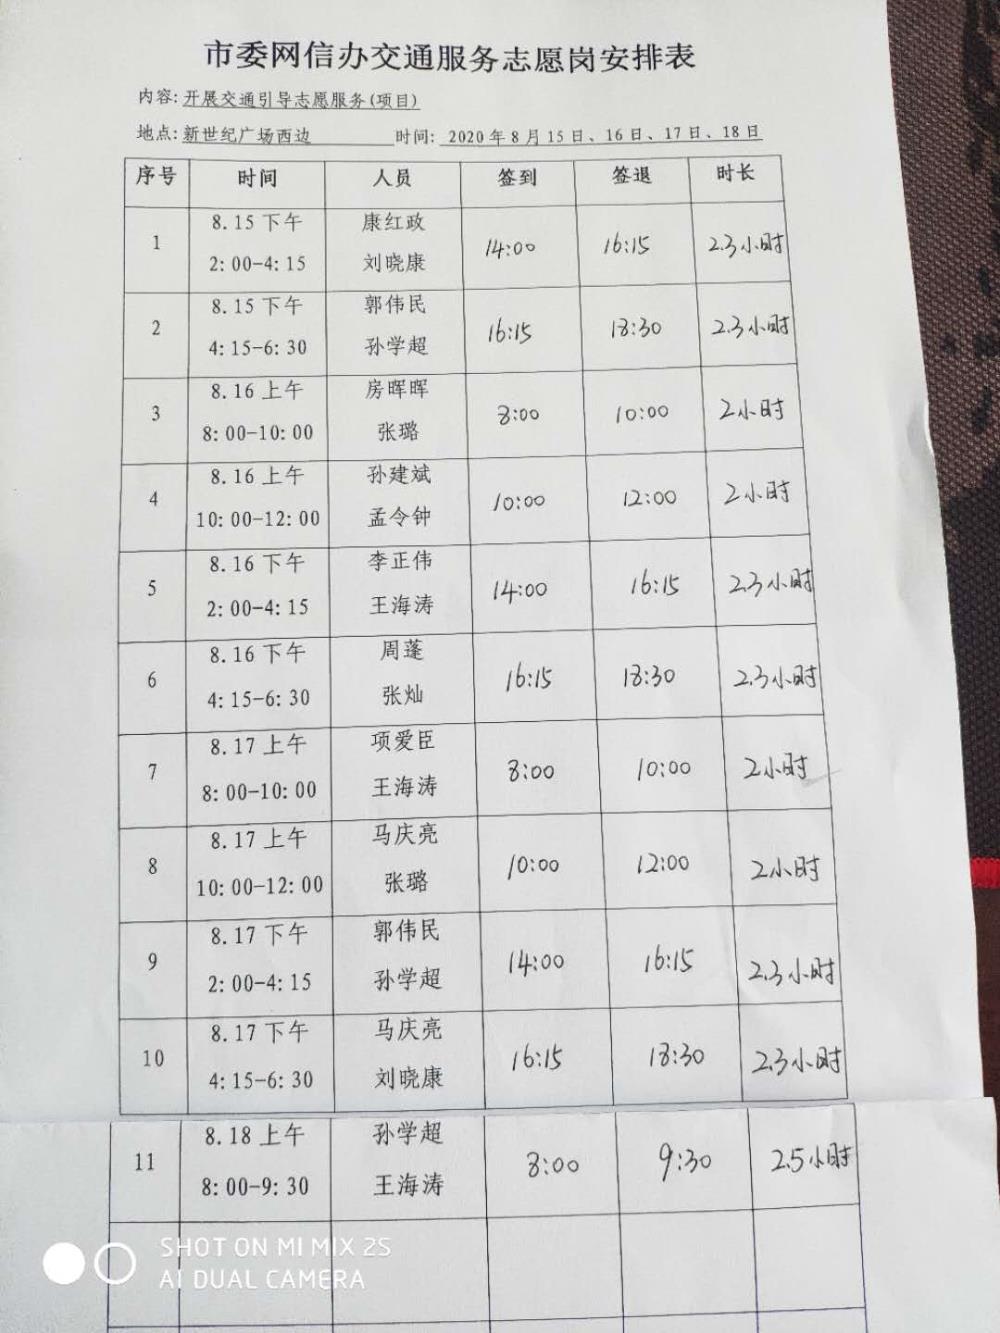 市委网信办交通服务志愿岗安排表
内容: 开展交通引导志愿服务(项目)
地点: 新世纪广场西边 时间: 2020年8月15日、16日、17日、18日
序号 时间 人员 签到 签退 时长
1 8.15下午 2:00-4:15 康红政 刘晓康 14:00 16:15 2.3小时
2 8.15下午 4:15-6:30 郭伟民 孙学超 16:15 18:30 2.3小时
3 8.16上午 8:00-10:00 房晖晖 张璐 8:00 10:00 2小时
4 8.16上午 10:00-12:00 孙建斌 孟令钟 10:00 12:00 2小时
5 8.16下午 2:00-4:15 李正伟 王海涛 14:00 16:15 2.3小时
6 8.16下午 4:15-6:30 周蓬 张灿 16:15 18:30 2.3小时
7 8.17上午 8:00-10:00 项爱臣 王海涛 8:00 10:00 2小时
8 8.17上午 10:00-12:00 马庆亮 张璐 10:00 12:00 2小时
9 8.17下午 2:00-4:15 郭伟民 孙学超 14:00 16:15 2.3小时
10 8.17下午 4:15-6:30 马庆亮 刘晓康 16:15 18:30 2.3小时
11 8.18上午 8:00-9:30 孙学超 王海涛 8:00 9:30 2.5小时
SHOT ON MI MIX 2S
AI DUAL CAMERA